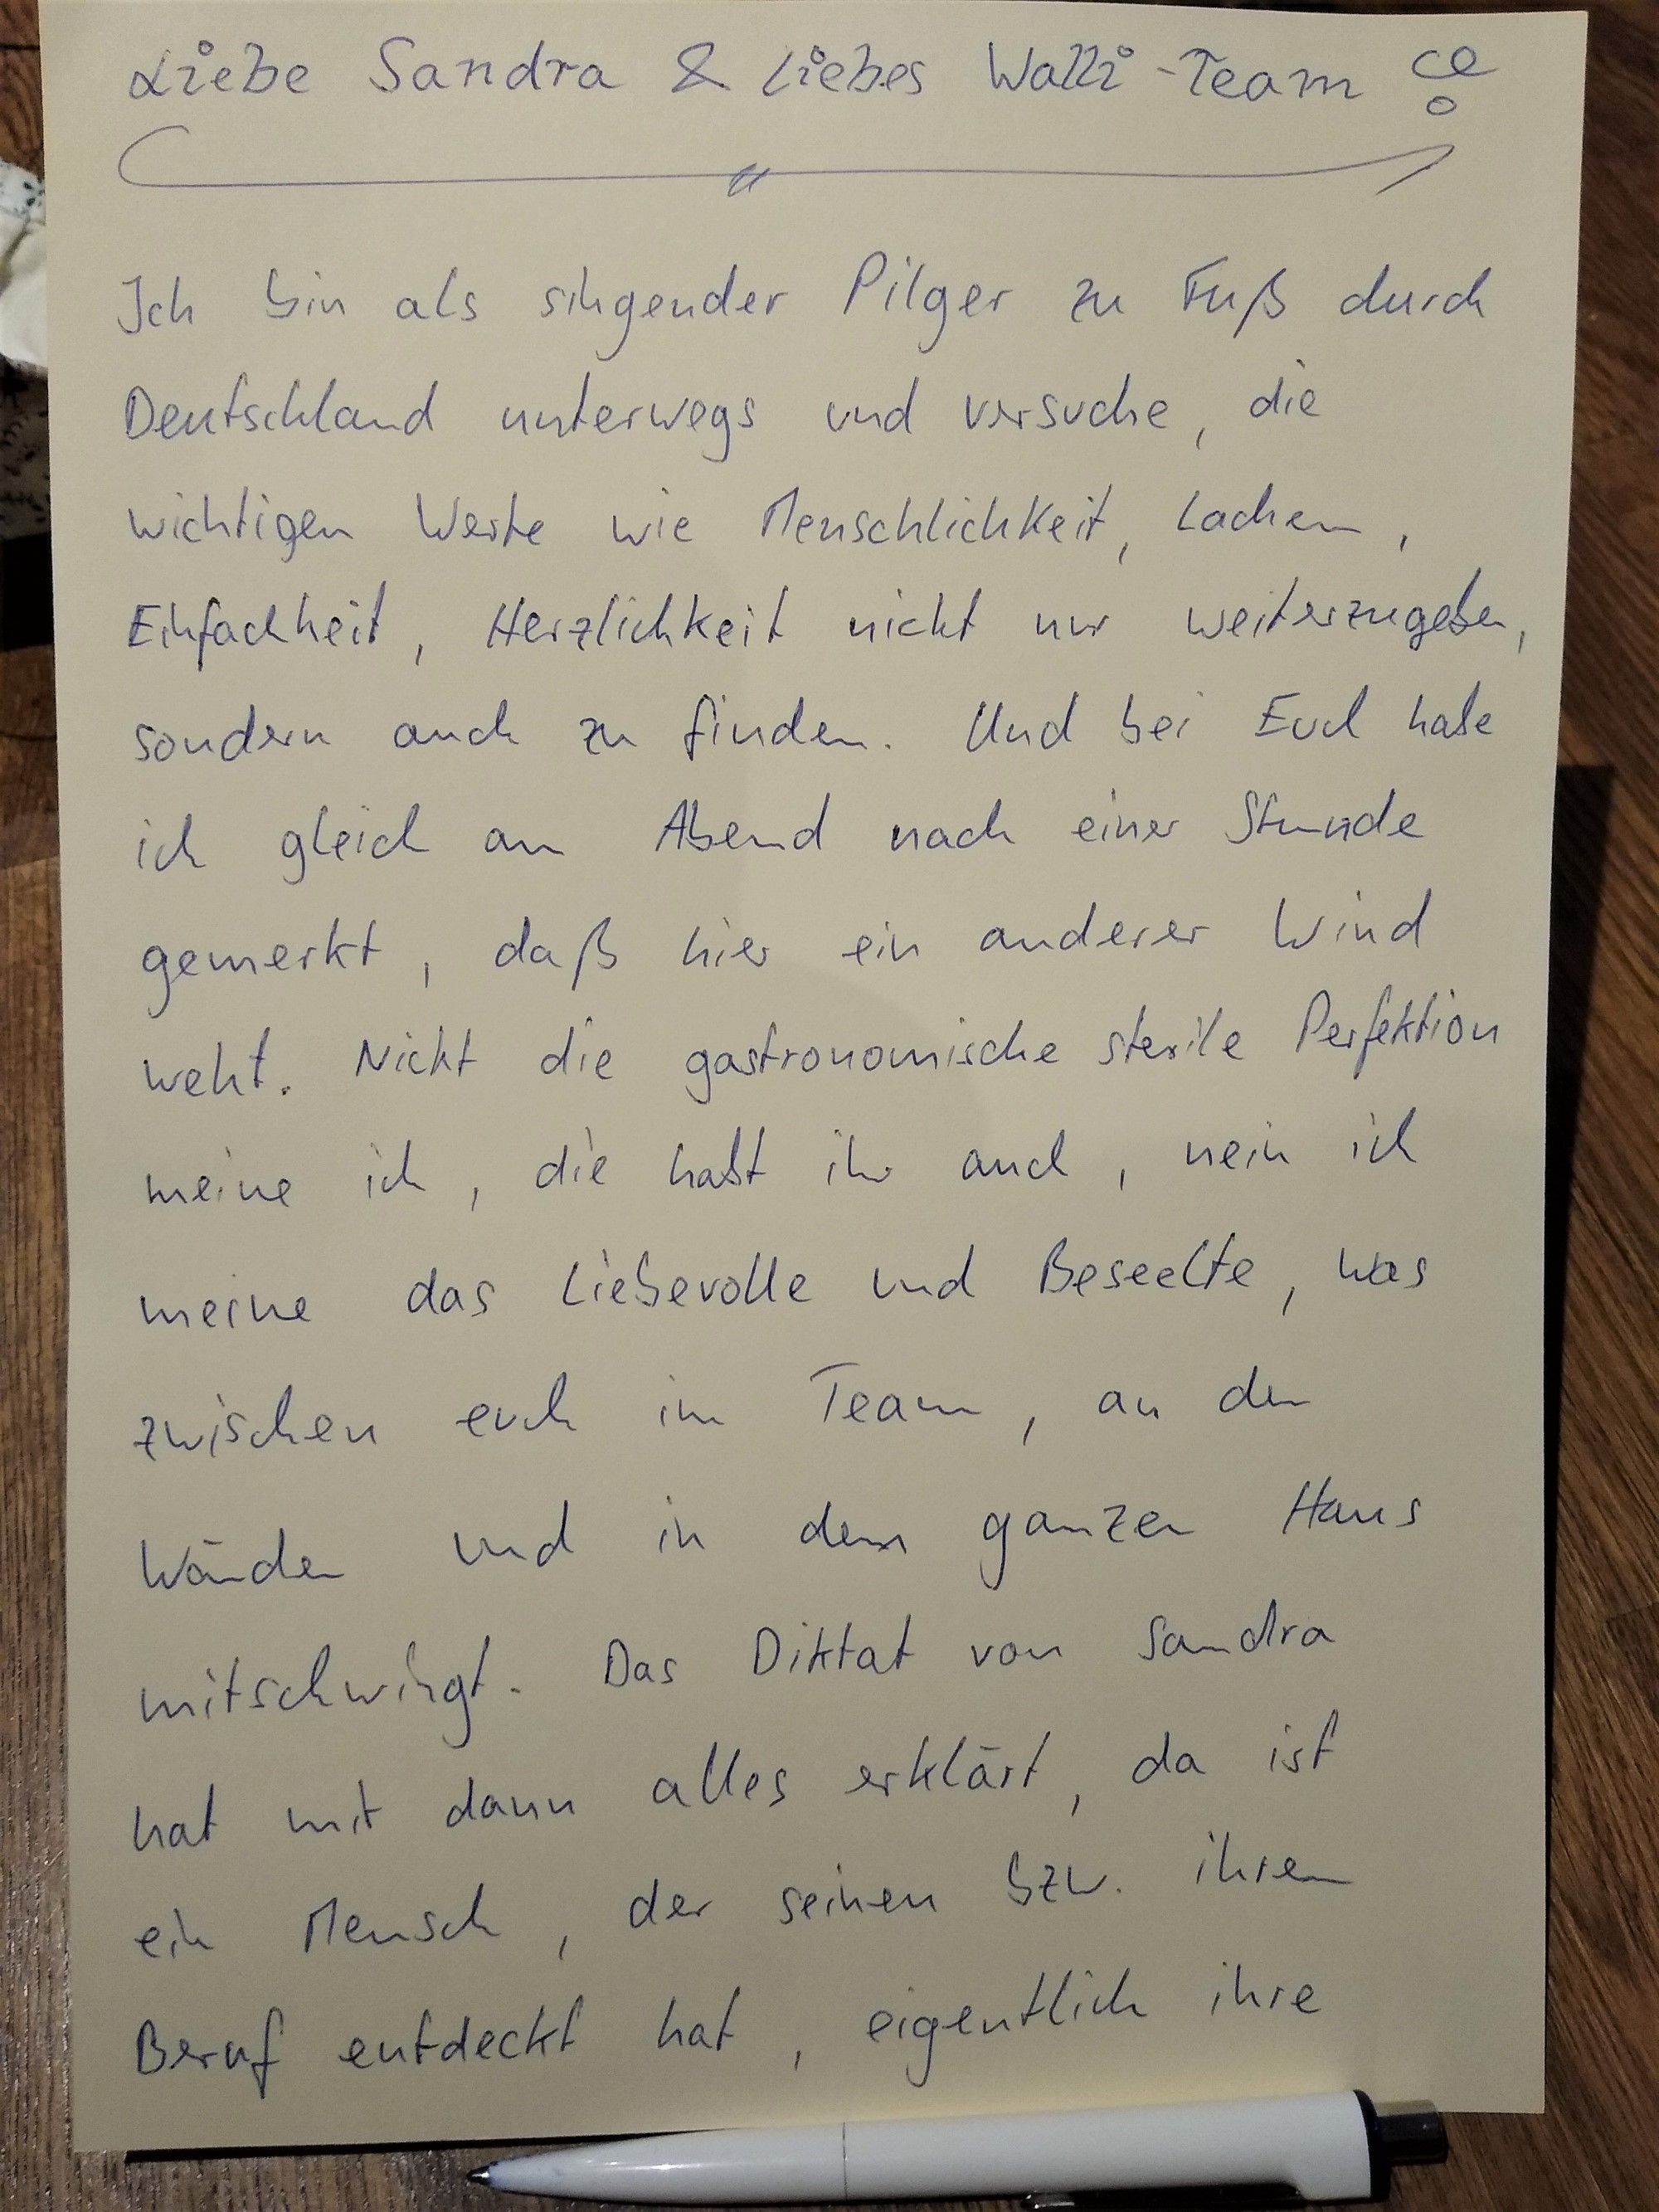 Liebe Sandra & Liebes Walli-Team !
Ich bin als singender Pilger zu Fuß durch
Deutschland unterwegs und versuche, die
wichtigen Werte wie Menschlichkeit, Lachen,
Einfachheit, Herzlichkeit nicht nur weiterzugeben,
sondern auch zu finden. Und bei Euch habe
ich gleich am Abend nach einer Stunde
gemerkt, daß hier ein anderer Wind
weht. Nicht die gastronomische sterile Perfektion
meine ich, die habt ihr auch, nein ich
meine das Liebevolle und Beseelte, was
zwischen euch im Team, an den
Wänden und in dem ganzen Haus
mitschwingt. Das Diktat von Sandra
hat mir dann alles erklärt, da ist
ein Mensch, der seinen bzw. ihren
Beruf entdeckt hat, eigentlich ihre